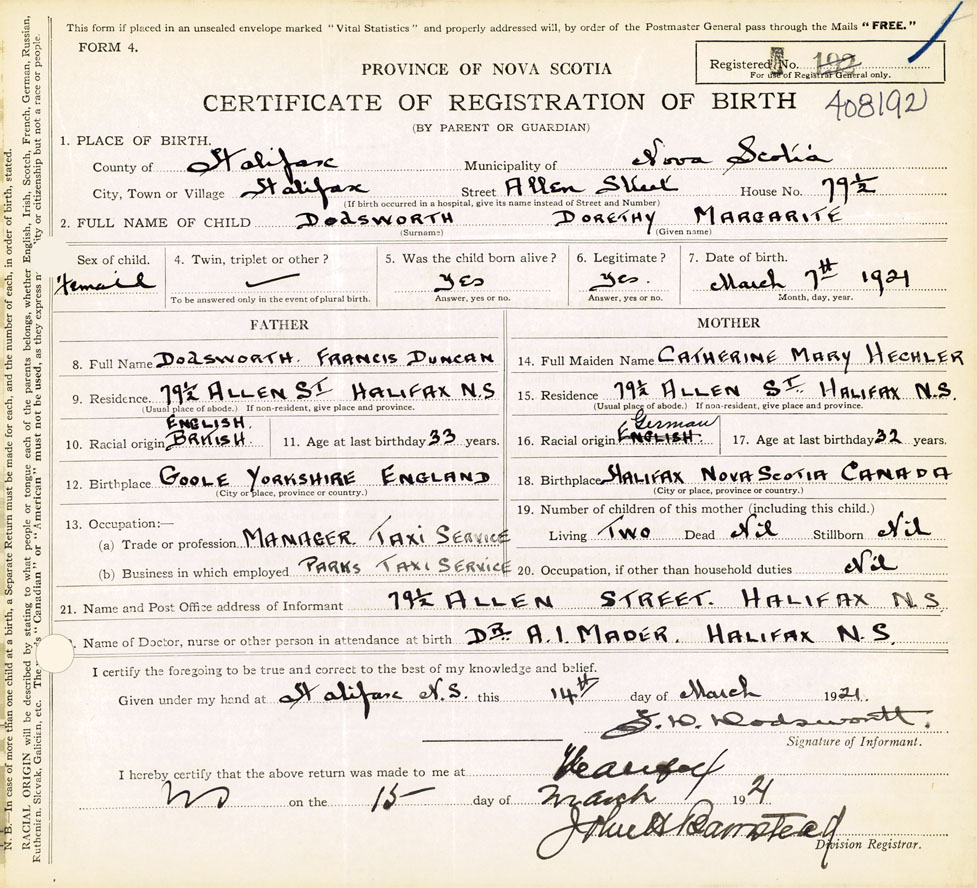 This form if placed in an unsealed envelope marked "Vital Statistics" and properly addressed will, by order of the Postmaster General pass through the Mails "FREE."
FORM 4.
Registered No. 192
For use of Registrar General only.
PROVINCE OF NOVA SCOTIA
CERTIFICATE OF REGISTRATION OF BIRTH 408192
(BY PARENT OR GUARDIAN)
1. PLACE OF BIRTH.
County of Halifax Municipality of Nova Scotia
City, Town or Village Halifax Street Allen Street House No. 79½
(If birth occurred in a hospital, give its name instead of Street and Number)
2. FULL NAME OF CHILD DODSWORTH DORETHY MARGARITE
(Surname) (Given name)
Sex of child. 4. Twin, triplet or other? 5. Was the child born alive? 6. Legitimate? 7. Date of birth.
Femail — Yes Yes. March 7th 1921
To be answered only in the event of plural birth. Answer, yes or no. Answer, yes or no. Month, day, year.
FATHER MOTHER
8. Full Name DODSWORTH. FRANCIS DUNCAN
9. Residence 79½ ALLEN ST HALIFAX N.S
(Usual place of abode.) If non-resident, give place and province.
ENGLISH.
10. Racial origin BRITISH 11. Age at last birthday 33 years.
12. Birthplace GOOLE YORKSHIRE ENGLAND
(City or place, province or country.)
13. Occupation:—
(a) Trade or profession MANAGER TAXI SERVICE
(b) Business in which employed PARKS TAXI SERVICE
14. Full Maiden Name CATHERINE MARY HECHLER
15. Residence 79½ ALLEN ST. HALIFAX N.S.
(Usual place of abode.) If non-resident, give place and province.
German
16. Racial origin ENGLISH. 17. Age at last birthday 32 years.
18. Birthplace HALIFAX NOVA SCOTIA CANADA
(City or place, province or country.)
19. Number of children of this mother (including this child.)
Living TWO Dead Nil Stillborn Nil
20. Occupation, if other than household duties Nil
21. Name and Post Office address of Informant 79½ ALLEN STREET. HALIFAX N.S.
. Name of Doctor, nurse or other person in attendance at birth DR. A.I. MADER. HALIFAX N.S.
I certify the foregoing to be true and correct to the best of my knowledge and belief.
Given under my hand at Halifax N.S. this 14th day of March 1921.
F. D. Dodsworth.
Signature of Informant.
I hereby certify that the above return was made to me at Halifax
NS on the 15 day of March 1921
John H Barnstead
Division Registrar.
N. B.—In case of more than one child at a birth, a Separate Return must be made for each, and the number of each, in order of birth, stated.
RACIAL ORIGIN will be described by stating to what people or tongue each of the parents belongs, whether English, Irish, Scotch, French, German, Russian,
Ruthenian, Slovak, Galician, etc. The "Canadian" or "American" must not be used, as they express citizenship but not a race or people.